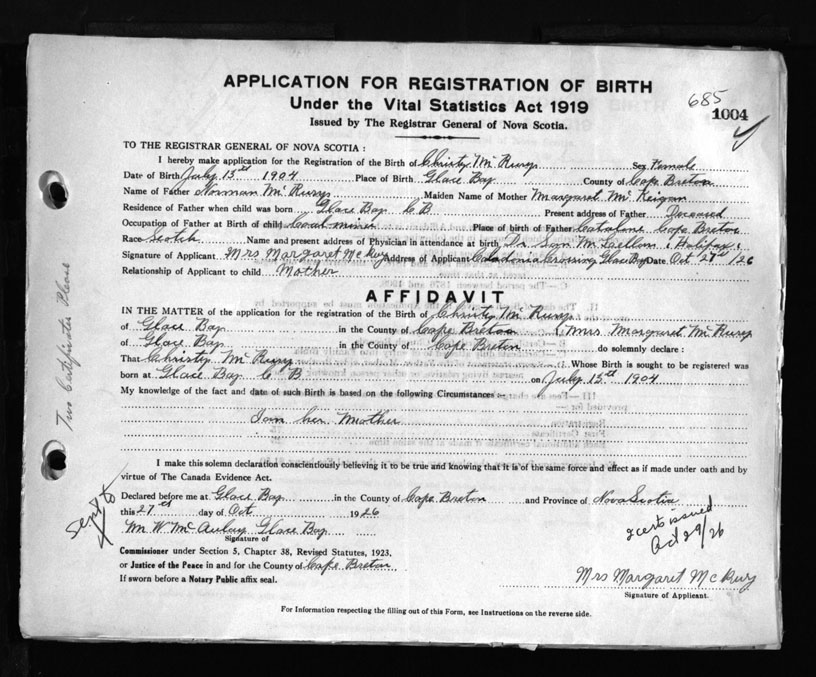 APPLICATION FOR REGISTRATION OF BIRTH
Under the Vital Statistics Act 1919
Issued by The Registrar General of Nova Scotia.
685
1004
TO THE REGISTRAR GENERAL OF NOVA SCOTIA :
I hereby make application for the Registration of the Birth of Christy McRury Sex Female
Date of Birth July 15th 1904 Place of Birth Glace Bay County of Cape Breton
Name of Father Norman McRury Maiden Name of Mother Margaret McKeigan
Residence of Father when child was born Glace Bay C B Present address of Father Deceased
Occupation of Father at Birth of child Coal miner Place of Birth of Father Catalone Cape Breton
Race Scotch Name and present address of Physician in attendance at birth Dr Halifax
Signature of Applicant Mrs Margaret McRury Address of Applicant Caledonia Crossing Glace Bay Date Oct 27th /26
Relationship of Applicant to child Mother
AFFIDAVIT
IN THE MATTER of the application for the registration of the Birth of Christy McRury
of Glace Bay in the County of Cape Breton I, Mrs Margaret McRury
of Glace Bay in the County of Cape Breton do solemnly declare :
That Christy McRury Whose Birth is sought to be registered was
born at Glace Bay C B on July 15th 1904
My knowledge of the fact and date of such Birth is based on the following Circumstances :-
I am her Mother
I make this solemn declaration conscientiously believing it to be true and knowing that it is of the same force and effect as if made under oath and by
virtue of The Canada Evidence Act.
Declared before me at Glace Bay in the County of Cape Breton and Province of Nova Scotia
this 27th day of Oct 1926
M W McAulay Glace Bay
Signature of
Commissioner under Section 5, Chapter 38, Revised Statutes, 1923,
or Justice of the Peace in and for the County of Cape Breton
If sworn before a Notary Public affix seal.
2 certs issued
Oct 29/26
Mrs Margaret McRury
Signature of Applicant.
For Information respecting the filling out of this Form, see Instructions on the reverse side.
Two Certificates Please